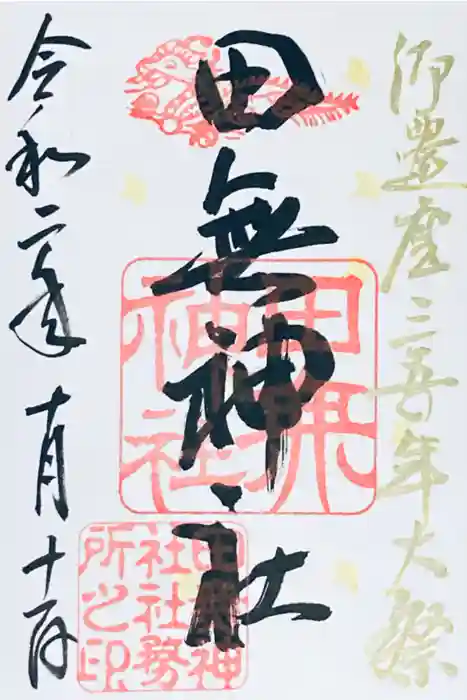 御遷座三五〇年大祭
田無神社
令和二年十月十日
田無神社
田無神社社務所之印